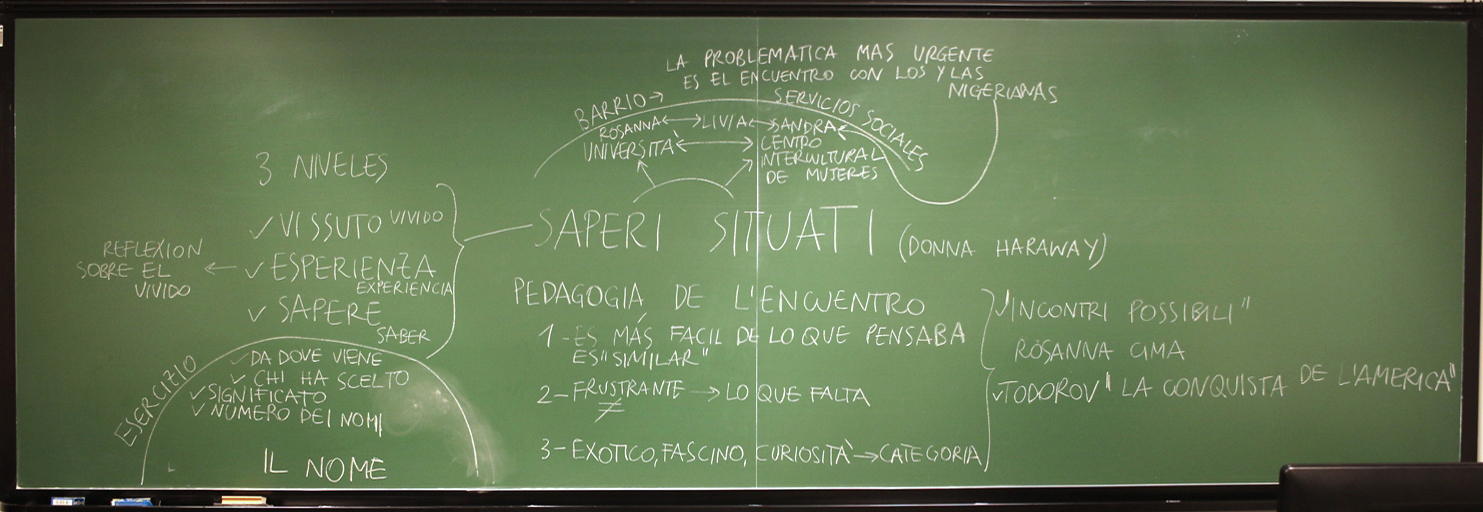 LA PROBLEMATICA MAS URGENTE
ES EL ENCUENTRO CON LOS Y LAS
NIGERIANAS
BARRIO →
SERVICIOS SOCIALES
ROSANNA ↔ LIVIA ↔ SANDRA
UNIVERSITÀ ↔ CENTRO
INTERCULTURAL
DE MUJERES
3 NIVELES
✓ VISSUTO VIVIDO
✓ ESPERIENZA
EXPERIENCIA
✓ SAPERE
SABER
REFLEXION
SOBRE EL
VIVIDO
SAPERI SITUATI (DONNA HARAWAY)
PEDAGOGIA DE L'ENCUENTRO
1 - ES MÁS FACIL DE LO QUE PENSABA
ES "SIMILAR"
2 - FRUSTRANTE → LO QUE FALTA
≠
3 - EXOTICO, FASCINO, CURIOSITÀ → CATEGORIA
✓ "INCONTRI POSSIBILI"
ROSANNA CIMA
✓ TODOROV "LA CONQUISTA DE L'AMERICA"
ESERCIZIO
✓ DA DOVE VIENE
✓ CHI HA SCELTO
✓ SIGNIFICATO
✓ NUMERO DEI NOMI
IL NOME